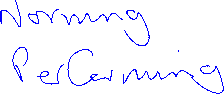 Norming
Performing